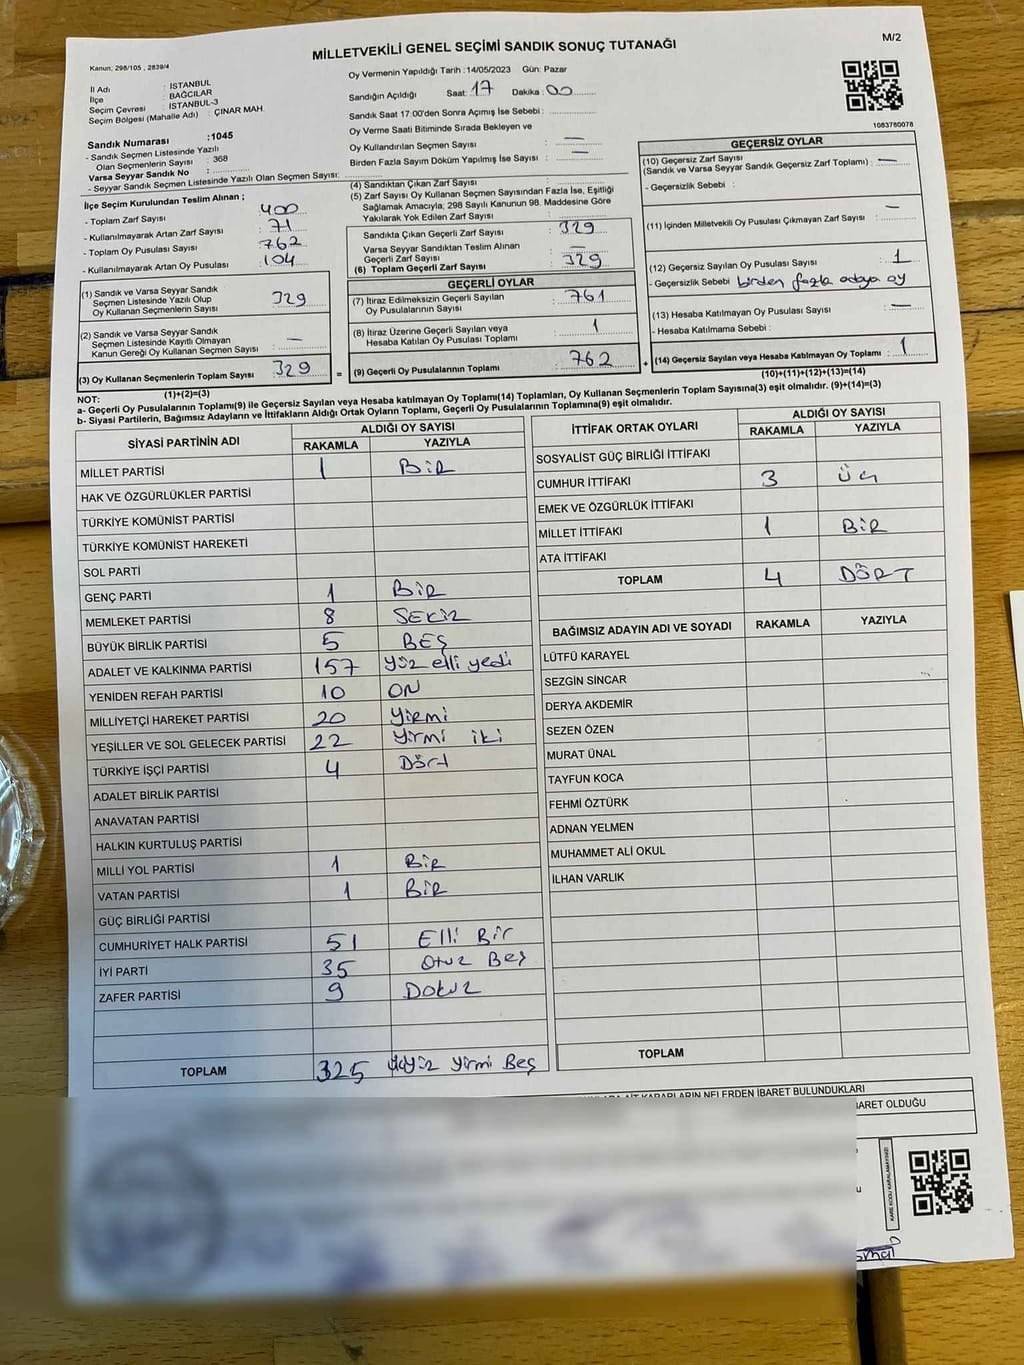 M/2
MİLLETVEKİLİ GENEL SEÇİMİ SANDIK SONUÇ TUTANAĞI
Kanun: 298/105 , 2839/4
İl Adı : İSTANBUL
İlçe : BAĞCILAR
Seçim Çevresi : İSTANBUL-3
Seçim Bölgesi (Mahalle Adı) : ÇINAR MAH.
Sandık Numarası :1045
- Sandık Seçmen Listesinde Yazılı
Olan Seçmenlerin Sayısı : 368
Varsa Seyyar Sandık No :
- Seyyar Sandık Seçmen Listesinde Yazılı Olan Seçmen Sayısı:
Oy Vermenin Yapıldığı Tarih :14/05/2023 Gün: Pazar
Sandığın Açıldığı Saat: 17 Dakika : 00
Sandık Saat 17:00'den Sonra Açılmış İse Sebebi :
Oy Verme Saati Bitiminde Sırada Bekleyen ve
Oy Kullandırılan Seçmen Sayısı : —
Birden Fazla Sayım Döküm Yapılmış İse Sayısı : —
1083780078
İlçe Seçim Kurulundan Teslim Alınan ;
- Toplam Zarf Sayısı : 400
- Kullanılmayarak Artan Zarf Sayısı : 71
- Toplam Oy Pusulası Sayısı : 762
- Kullanılmayarak Artan Oy Pusulası : 104
(1) Sandık ve Varsa Seyyar Sandık
Seçmen Listesinde Yazılı Olup
Oy Kullanan Seçmenlerin Sayısı : 329
(2) Sandık ve Varsa Seyyar Sandık
Seçmen Listesinde Kayıtlı Olmayan
Kanun Gereği Oy Kullanan Seçmen Sayısı : —
(3) Oy Kullanan Seçmenlerin Toplam Sayısı : 329
(1)+(2)=(3)
(4) Sandıktan Çıkan Zarf Sayısı :
(5) Zarf Sayısı Oy Kullanan Seçmen Sayısından Fazla İse, Eşitliği
Sağlamak Amacıyla; 298 Sayılı Kanunun 98. Maddesine Göre
Yakılarak Yok Edilen Zarf Sayısı :
Sandıkta Çıkan Geçerli Zarf Sayısı : 329
Varsa Seyyar Sandıktan Teslim Alınan
Geçerli Zarf Sayısı : —
(6) Toplam Geçerli Zarf Sayısı : 329
GEÇERLİ OYLAR
(7) İtiraz Edilmeksizin Geçerli Sayılan
Oy Pusulalarının Sayısı : 761
(8) İtiraz Üzerine Geçerli Sayılan veya
Hesaba Katılan Oy Pusulası Toplamı : 1
= (9) Geçerli Oy Pusulalarının Toplamı : 762 +
GEÇERSİZ OYLAR
(10) Geçersiz Zarf Sayısı
(Sandık ve Varsa Seyyar Sandık Geçersiz Zarf Toplamı) : —
- Geçersizlik Sebebi :
(11) İçinden Milletvekili Oy Pusulası Çıkmayan Zarf Sayısı : —
(12) Geçersiz Sayılan Oy Pusulası Sayısı : 1
- Geçersizlik Sebebi birden fazla adaya oy
(13) Hesaba Katılmayan Oy Pusulası Sayısı : —
- Hesaba Katılmama Sebebi :
(14) Geçersiz Sayılan veya Hesaba Katılmayan Oy Toplamı : 1
(10)+(11)+(12)+(13)=(14)
NOT:
a- Geçerli Oy Pusulalarının Toplamı(9) ile Geçersiz Sayılan veya Hesaba katılmayan Oy Toplamı(14) Toplamları, Oy Kullanan Seçmenlerin Toplam Sayısına(3) eşit olmalıdır. (9)+(14)=(3)
b- Siyasi Partilerin, Bağımsız Adayların ve İttifakların Aldığı Ortak Oyların Toplamı, Geçerli Oy Pusulalarının Toplamına(9) eşit olmalıdır.
SİYASİ PARTİNİN ADI ALDIĞI OY SAYISI
RAKAMLA YAZIYLA
MİLLET PARTİSİ 1 BİR
HAK VE ÖZGÜRLÜKLER PARTİSİ
TÜRKİYE KOMÜNİST PARTİSİ
TÜRKİYE KOMÜNİST HAREKETİ
SOL PARTİ
GENÇ PARTİ 1 BİR
MEMLEKET PARTİSİ 8 SEKİZ
BÜYÜK BİRLİK PARTİSİ 5 BEŞ
ADALET VE KALKINMA PARTİSİ 157 Yüz elli yedi
YENİDEN REFAH PARTİSİ 10 ON
MİLLİYETÇİ HAREKET PARTİSİ 20 Yirmi
YEŞİLLER VE SOL GELECEK PARTİSİ 22 Yirmi iki
TÜRKİYE İŞÇİ PARTİSİ 4 Dört
ADALET BİRLİK PARTİSİ
ANAVATAN PARTİSİ
HALKIN KURTULUŞ PARTİSİ
MİLLİ YOL PARTİSİ 1 BİR
VATAN PARTİSİ 1 BİR
GÜÇ BİRLİĞİ PARTİSİ
CUMHURİYET HALK PARTİSİ 51 Elli Bir
İYİ PARTİ 35 Otuz Beş
ZAFER PARTİSİ 9 Dokuz
TOPLAM 325 üçyüz Yirmi Beş
İTTİFAK ORTAK OYLARI ALDIĞI OY SAYISI
RAKAMLA YAZIYLA
SOSYALİST GÜÇ BİRLİĞİ İTTİFAKI
CUMHUR İTTİFAKI 3 Üç
EMEK VE ÖZGÜRLÜK İTTİFAKI
MİLLET İTTİFAKI 1 BİR
ATA İTTİFAKI
TOPLAM 4 DÖRT
BAĞIMSIZ ADAYIN ADI VE SOYADI RAKAMLA YAZIYLA
LÜTFÜ KARAYEL
SEZGİN SİNCAR
DERYA AKDEMİR
SEZEN ÖZEN
MURAT ÜNAL
TAYFUN KOCA
FEHMİ ÖZTÜRK
ADNAN YELMEN
MUHAMMET ALİ OKUL
İLHAN VARLIK
TOPLAM
KARARLARIN NELERDEN İBARET BULUNDUKLARI
İBARET OLDUĞU
KARE KODU KARALAMAYINIZ!